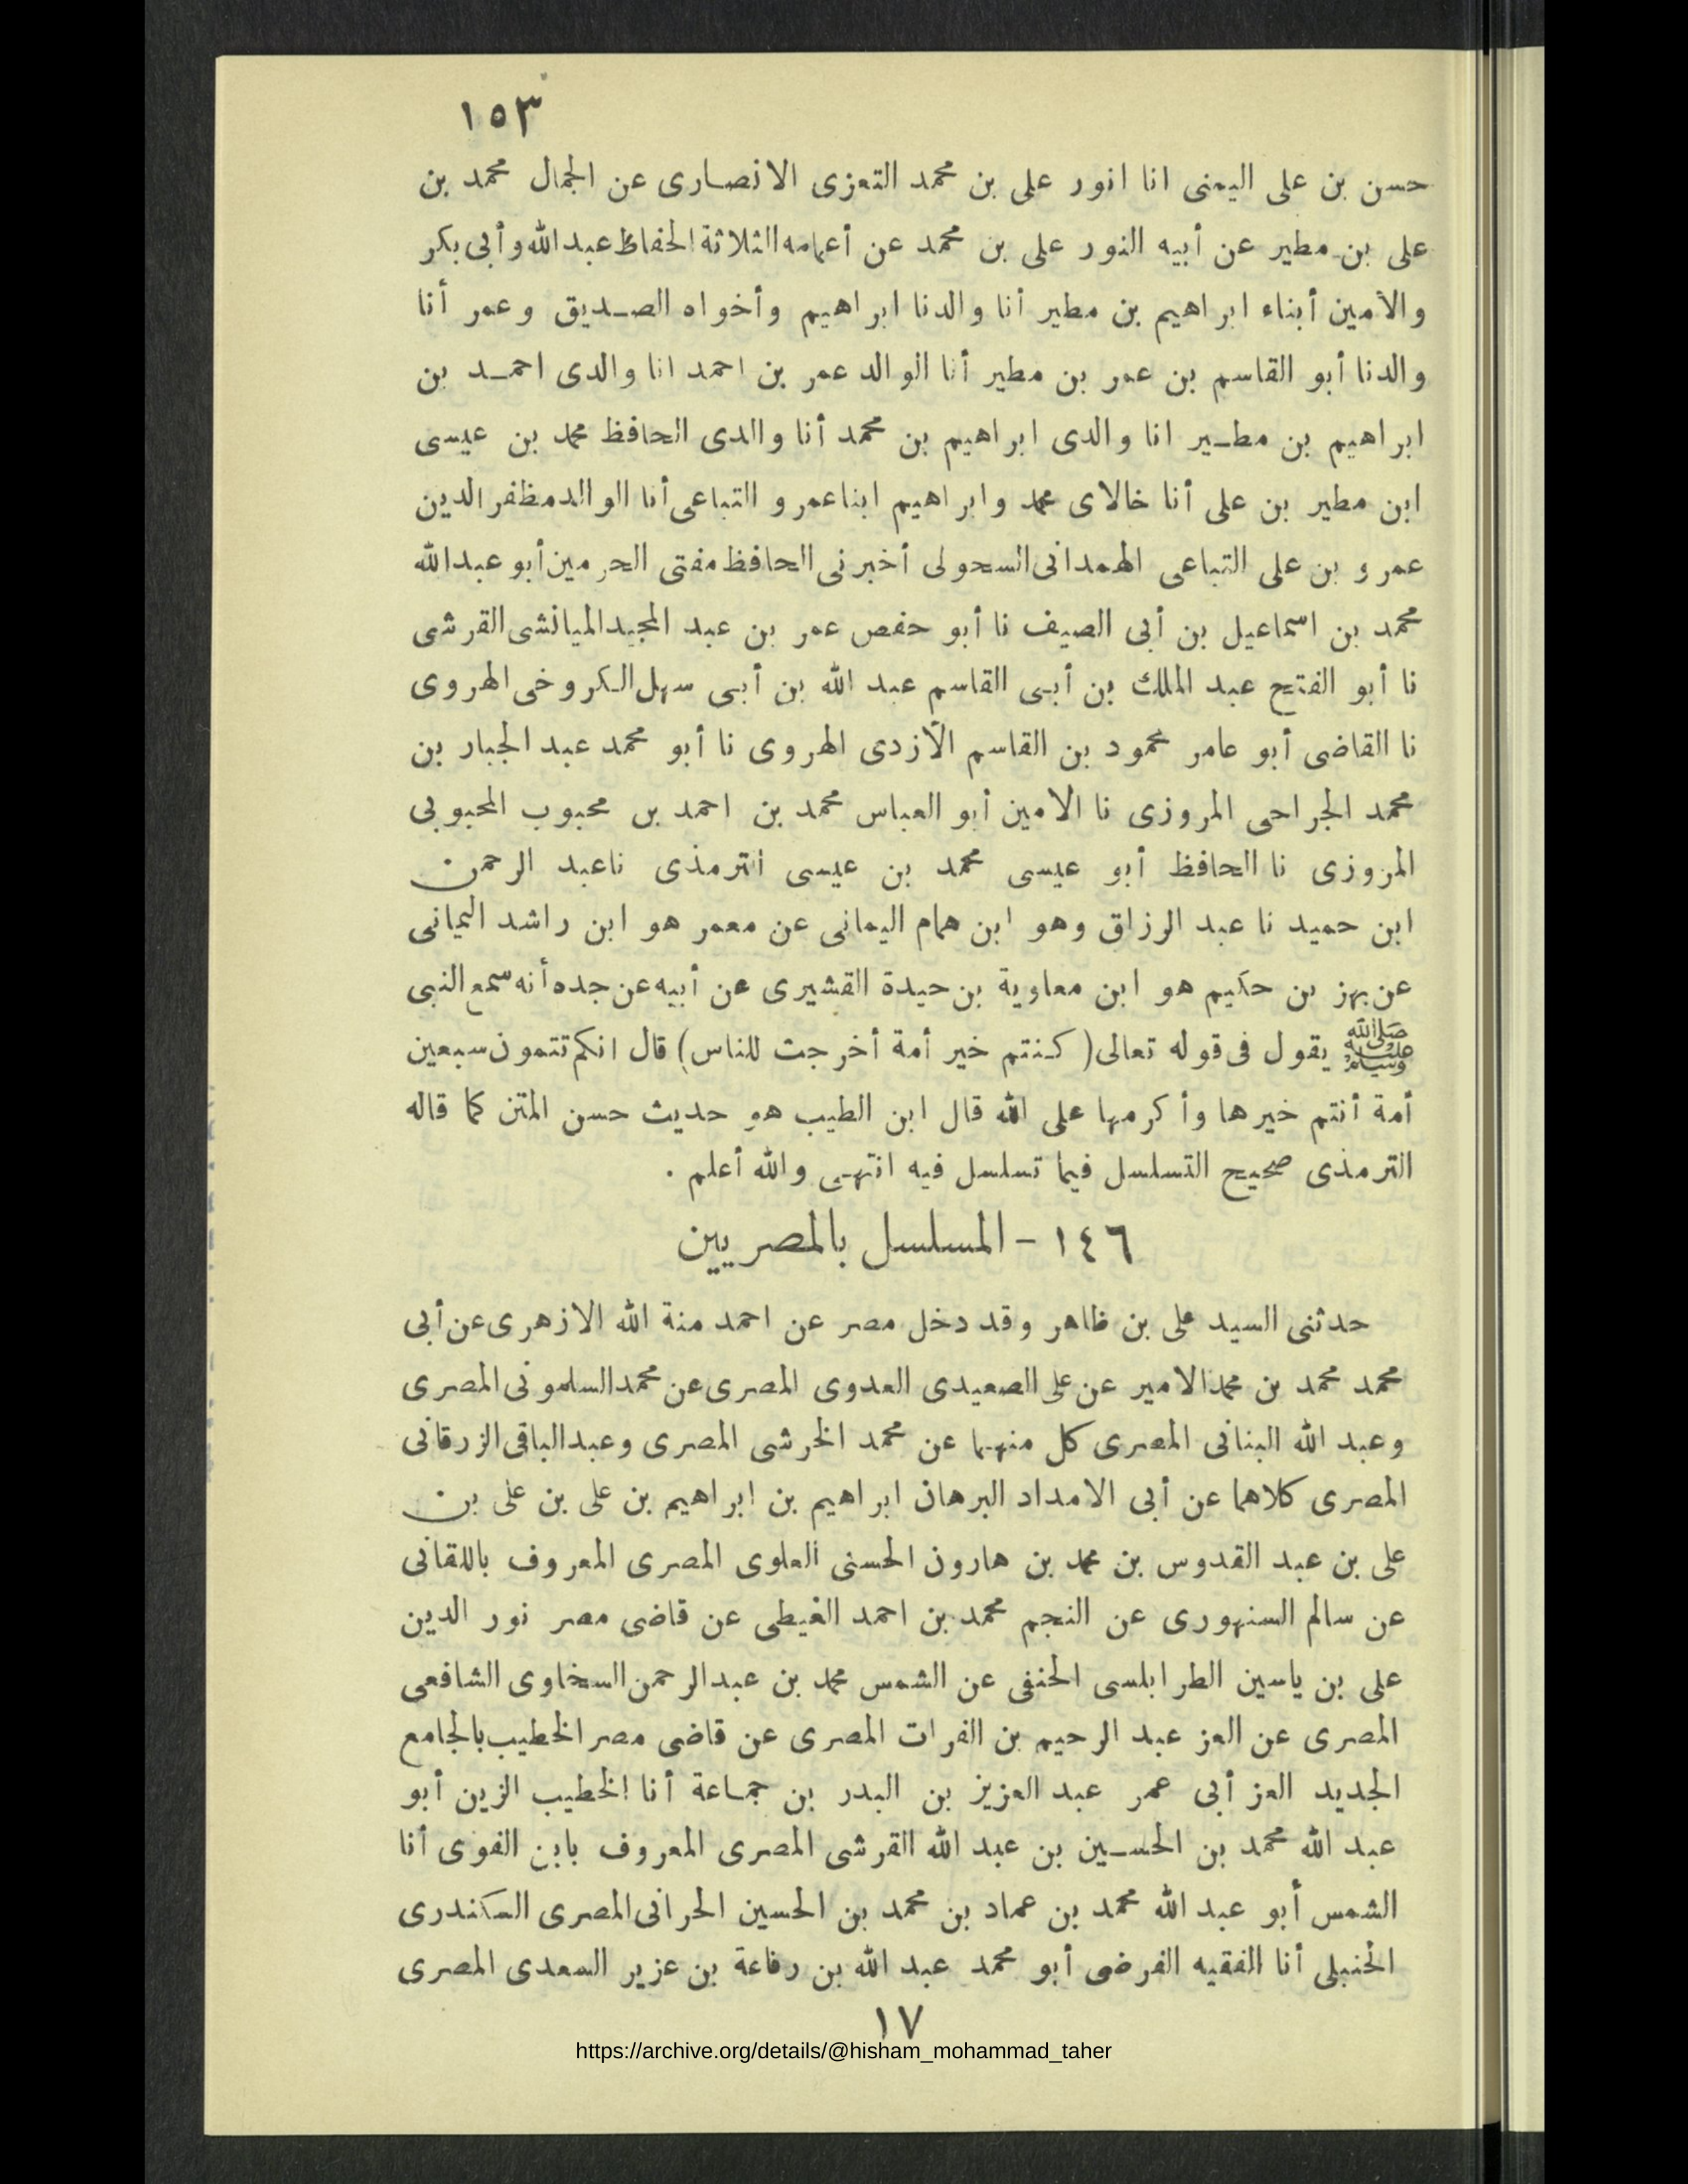 ١٥٣
حسن بن على اليمنى انا انور على بن محمد التعزى الانصارى عن الجمال محمد بن
على بن مطير عن أبيه النور على بن محمد عن أعمامه الثلاثة الحفاظ عبد الله وأبى بكر
والأمين أبناء ابراهيم بن مطير أنا والدنا ابراهيم وأخواه الصديق وعمر أنا
والدنا أبو القاسم بن عمر بن مطير أنا الوالد عمر بن احمد انا والدى احمد بن
ابراهيم بن مطير انا والدى ابراهيم بن محمد أنا والدى الحافظ محمد بن عيسى
ابن مطير بن على أنا خالاى محمد وابراهيم ابنا عمرو التباعى أنا الوالد مظفر الدين
عمرو بن على التباعى الهمدانى السحولى أخبرنى الحافظ مفتى الحرمين أبو عبدالله
محمد بن اسماعيل بن أبى الصيف نا أبو حفص عمر بن عبد المجيد الميانشى القرشى
نا أبو الفتح عبد الملك بن أبى القاسم عبد الله بن أبى سهل الكروخى الهروى
نا القاضى أبو عامر محمود بن القاسم الأزدى الهروى نا أبو محمد عبد الجبار بن
محمد الجراحى المروزى نا الامين أبو العباس محمد بن احمد بن محبوب المحبوبى
المروزى نا الحافظ أبو عيسى محمد بن عيسى الترمذى نا عبد الرحمن
ابن حميد نا عبد الرزاق وهو ابن همام اليمانى عن معمر هو ابن راشد اليمانى
عن بهز بن حكيم هو ابن معاوية بن حيدة القشيرى عن أبيه عن جده أنه سمع النبى
ﷺ يقول فى قوله تعالى (كنتم خير أمة أخرجت للناس) قال انكم تتمون سبعين
أمة أنتم خيرها وأكرمها على الله قال ابن الطيب هو حديث حسن المتن كما قاله
الترمذى صحيح التسلسل فيما تسلسل فيه انتهى والله أعلم .
١٤٦ - المسلسل بالمصريين
حدثنى السيد على بن ظاهر وقد دخل مصر عن احمد منة الله الازهرى عن أبى
محمد محمد بن محمد الامير عن على الصعيدى العدوى المصرى عن محمد السلمونى المصرى
وعبد الله البنانى المصرى كل منهما عن محمد الخرشى المصرى وعبد الباقى الزرقانى
المصرى كلاهما عن أبى الامداد البرهان ابراهيم بن ابراهيم بن على بن على بن
على بن عبد القدوس بن محمد بن هارون الحسنى العلوى المصرى المعروف باللقانى
عن سالم السنهورى عن النجم محمد بن احمد الغيطى عن قاضى مصر نور الدين
على بن ياسين الطرابلسى الحنفى عن الشمس محمد بن عبد الرحمن السخاوى الشافعى
المصرى عن العز عبد الرحيم بن الفرات المصرى عن قاضى مصر الخطيب بالجامع
الجديد العز أبى عمر عبد العزيز بن البدر بن جماعة أنا الخطيب الزين أبو
عبد الله محمد بن الحسين بن عبد الله القرشى المصرى المعروف بابن الفوى أنا
الشمس أبو عبد الله محمد بن عماد بن محمد بن الحسين الحرانى المصرى السكندرى
الحنبلى أنا الفقيه الفرضى أبو محمد عبد الله بن رفاعة بن عزير السعدى المصرى
١٧
https://archive.org/details/@hisham_mohammad_taher